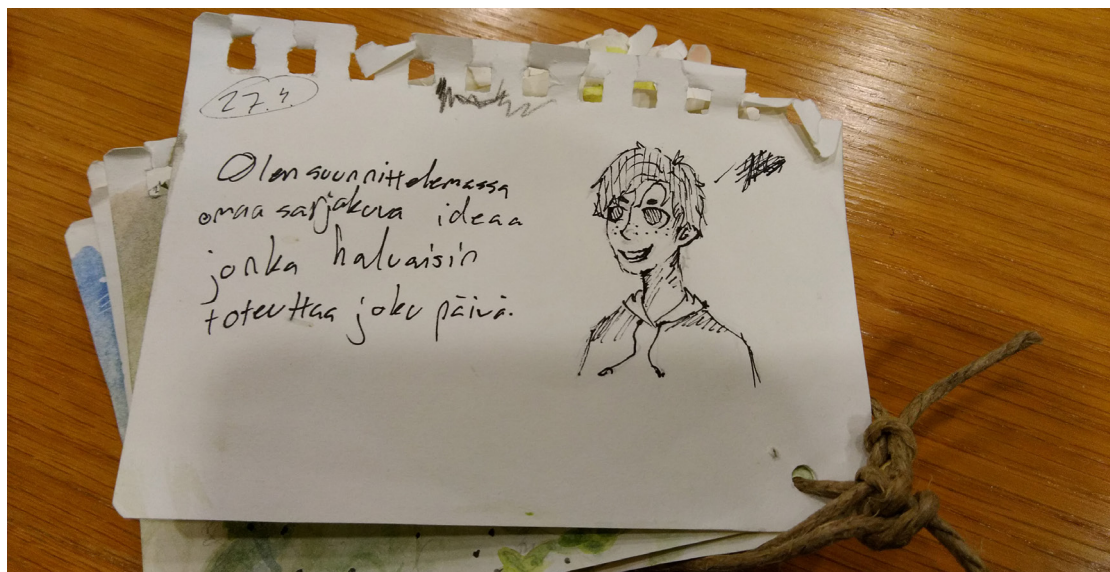 27.4.
Olen suunnittelemassa
omaa sarjakuva ideaa
jonka haluaisin
toteuttaa joku päivä.